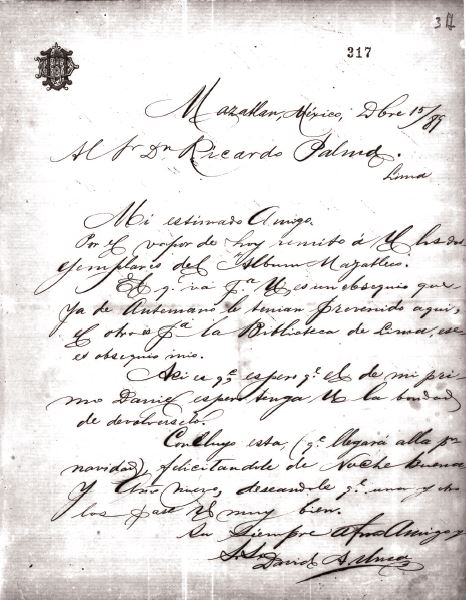 317
317
Mazatlan, México, Dbre 15/89
Al Sr Dn Ricardo Palma.
Lima
Mi estimado Amigo.
Por el vapor de hoy remito á U los dos
ejemplares del "Album Mazatleco.
El q. va pa. U es un obsequio que
ya de Antemano le tenian prevenido aqui,
el otro es pa. la Biblioteca de Lima, ese
es obsequio mio.
Asi es qe. espero q. el de mi pri
mo Daniel espero tenga U la bondad
de devolverselo.
Concluyo esta, (q. llegará alla pr
navidad), felicitandole de Noche buena
y Año nuevo, deseandole q. uno y otro
los pase U muy bien.
Su siempre afmo Amigo y
S. S.
David A.